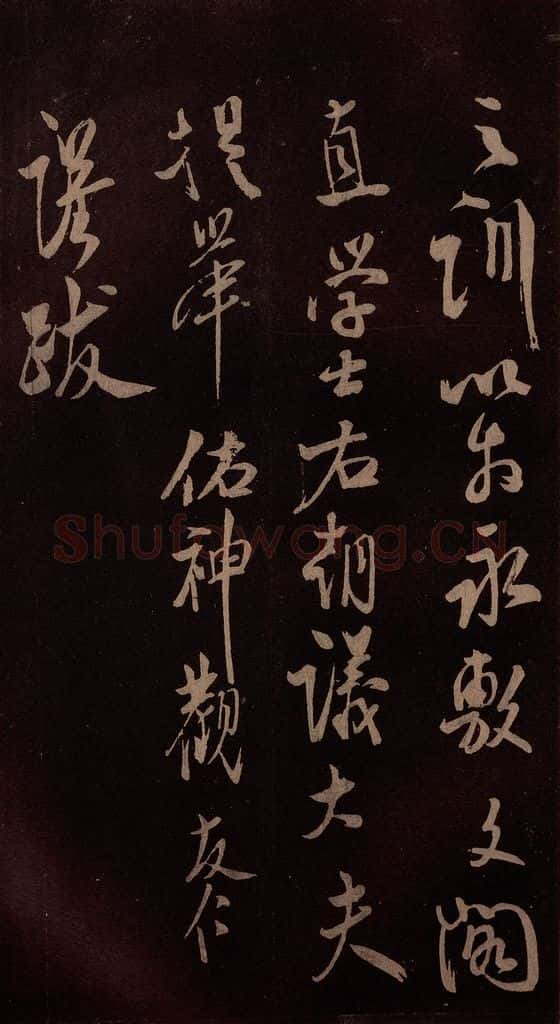 之訓以为永敷文閣
直学士右朝議大夫
提舉佑神觀友仁
謹跋
Shufawang.CN